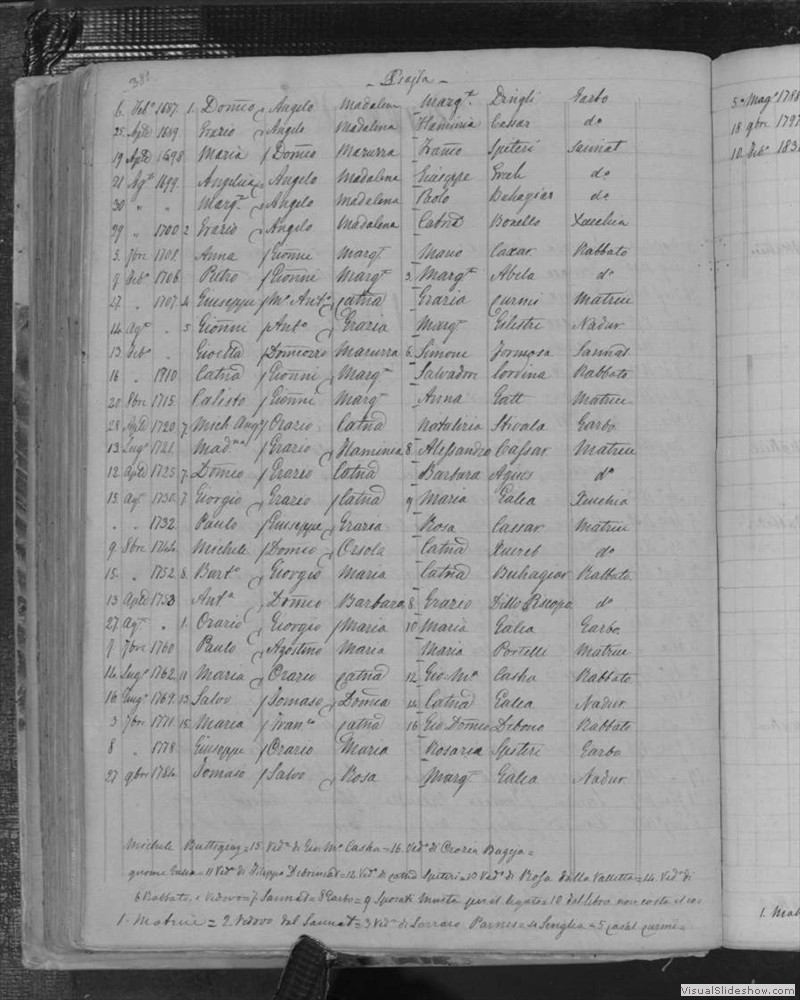 381
5 Mag° 1788
18 9bre 1797
10 Feb° 183
6 Feb° 1687 1 Domeo Angelo Madalena Margt Dingli Garbo
25 Aple 1689 Grazio Angelo Madalena Flaminia Cassar do
19 Aple 1698 Maria Domeo Mazurra Franco Speteri Sannat
21 Agto 1699 Angelica Angelo Madalena Giuseppe Grech do
30 " " Margt Angelo Madalena Paolo Buhagiar do
29 " 1700 2 Grazio Angelo Madalena Catna Bonello Xeuchia
5 7bre 1701 Anna Gionni Margt Mario Caxar Rabbato
9 Feb° 1706 Pietro Gionni Margt 3 Margt Abela do
27 " 1707 4 Giuseppe Mo Anto Catna Grazia Curmi Matrice
14 Ago " 5 Gionni Anto Grazia Margt Celestri Nadur
13 Feb° " Domeo Mazurra 6 Simone Formosa Sannat
16 " 1710 Catna Gionni Margt Salvadore Cordina Rabbato
20 8bre 1715 Calisto Gionni Margt Anna Gatt Matrice
28 Aple 1720 7 Mich Ang Orazio Catna Notaleria Stivala Garbo
13 Lugo 1721 Madna Grazio Flaminia 8 Alessandro Cassar Matrice
12 Aple 1725 7 Domeo Grazio Catna Barbara Agius do
15 Ago 1730 7 Giorgio Grazio Catna 9 Maria Galea Xeuchia
" " 1732 Paulo Giuseppe Grazia Rosa Cassar Matrice
9 8bre 1744 Michele Domeo Orsola Catna Xuereb do
15 " 1752 8 Barto Giorgio Maria Catna Buhagiar Rabbato
13 Aple 1753 Anta Domeo Barbara 8 Grazio Dello Piscopo do
27 Ago " 1 Orazio Giorgio Maria 10 Maria Galea Garbo
7 7bre 1760 Paulo Agostino Maria Maria Portelli Matrice
14 Lugo 1762 11 Maria Orazio Catna 12 Gio Ma Casha Rabbato
16 Giugo 1769 13 Salvo Tomaso Domca 14 Catna Galea Nadur
3 7bre 1771 15 Maria Franco Catna 16 Gio Domeo Debono Rabbato
8 " 1778 Giuseppe Orazio Maria Rosaria Speteri Garbo
27 9bre 1784 Tomaso Salvo Rosa Margt Galea Nadur
Michele Buttigieg = 15 Veda di Gio Ma Casha = 16 Vedo di Grazia Bugeja =
Galea = 11 Veda di Filippo = 12 Vedo di Catna Speteri = 10 Veda di Rosa dalla Valletta = 14 Veda di
6 Rabbato, e Vedovo = 7 Sannat = 8 Garbo = 9 Sposati
1 Matrice = 2 Vedovo dal Sannat = 3 Veda di Parnis = 4 Senglea = 5 Casal Curmi =
1. Mat
VisualSlideshow.com